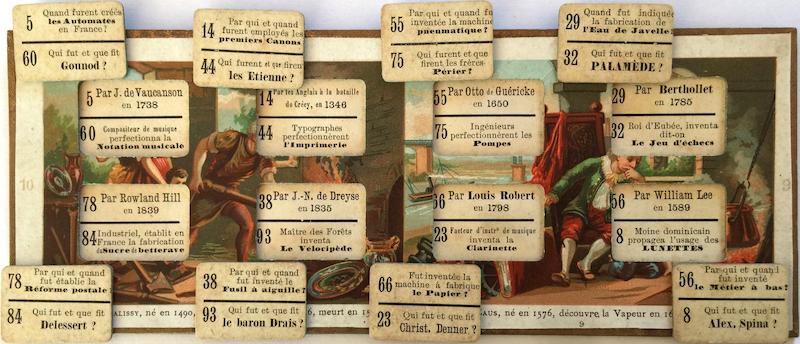 5 Quand furent créés
les Automates
en France?
60 Qui fut et que fit
Gounod?
14 Par qui et quand
furent employés les
premiers Canons
44 Qui furent et que firent
les Etienne?
55 Par qui et quand fu
inventée la machine
pneumatique?
75 Qui furent et que
firent les frères
Périer?
29 Quand fut indiquée
la fabrication de
l'Eau de Javelle
32 Qui fut et que fit
PALAMÈDE?
5 Par J. de Vaucanson
en 1738
60 Compositeur de musique
perfectionna la
Notation musicale
14 Par les Anglais à la bataille
de Crécy, en 1346
44 Typographes
perfectionnèrent
l'Imprimerie
55 Par Otto de Guéricke
en 1650
75 Ingénieurs
perfectionnèrent les
Pompes
29 Par Berthollet
en 1785
32 Roi d'Eubée, inventa
dit-on
Le Jeu d'échecs
10
9
78 Par Rowland Hill
en 1839
84 Industriel, établit en
France la fabrication
du Sucre de betterave
38 Par J.-N. de Dreyse
en 1835
93 Maître des Forêts
inventa
Le Vélocipède
66 Par Louis Robert
en 1798
23 Facteur d'instrs de musique
inventa la
Clarinette
56 Par William Lee
en 1589
8 Moine dominicain
propagea l'usage des
LUNETTES
78 Par qui et quand
fut établie la
Réforme postale?
84 Qui fut et que fit
Delessert?
38 Par qui et quand
fut inventé le
Fusil à aiguille?
93 Qui fut et que fit
le baron Drais?
66 Fut inventée la
machine à fabrique
le Papier?
23 Qui fut et que fit
Christ. Denner?
56 Par qui et quand
fut inventé
le Métier à bas?
8 Qui fut et que fit
Alex. Spina?
ALISSY, né en 1490,
6, meurt en 15
AUS, né en 1576, découvre la Vapeur en 16
9